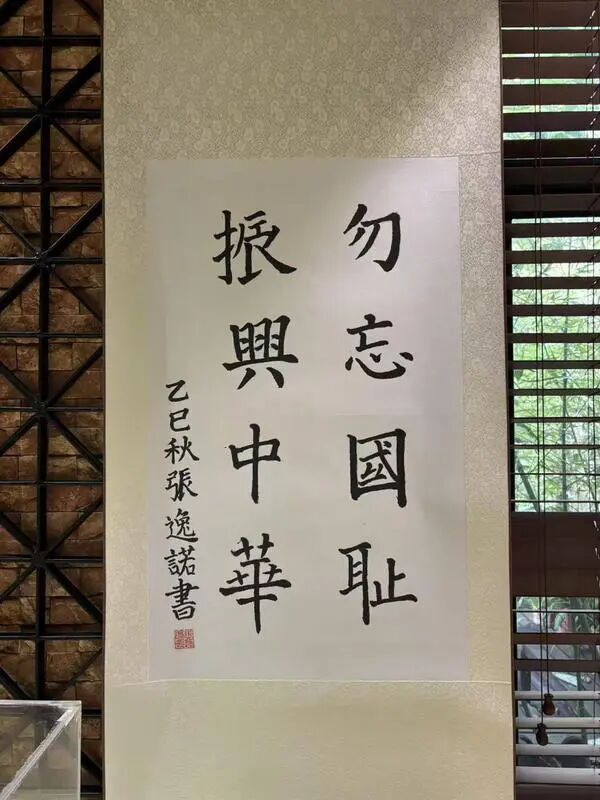 勿忘國恥
振興中華
乙巳秋張逸諾書